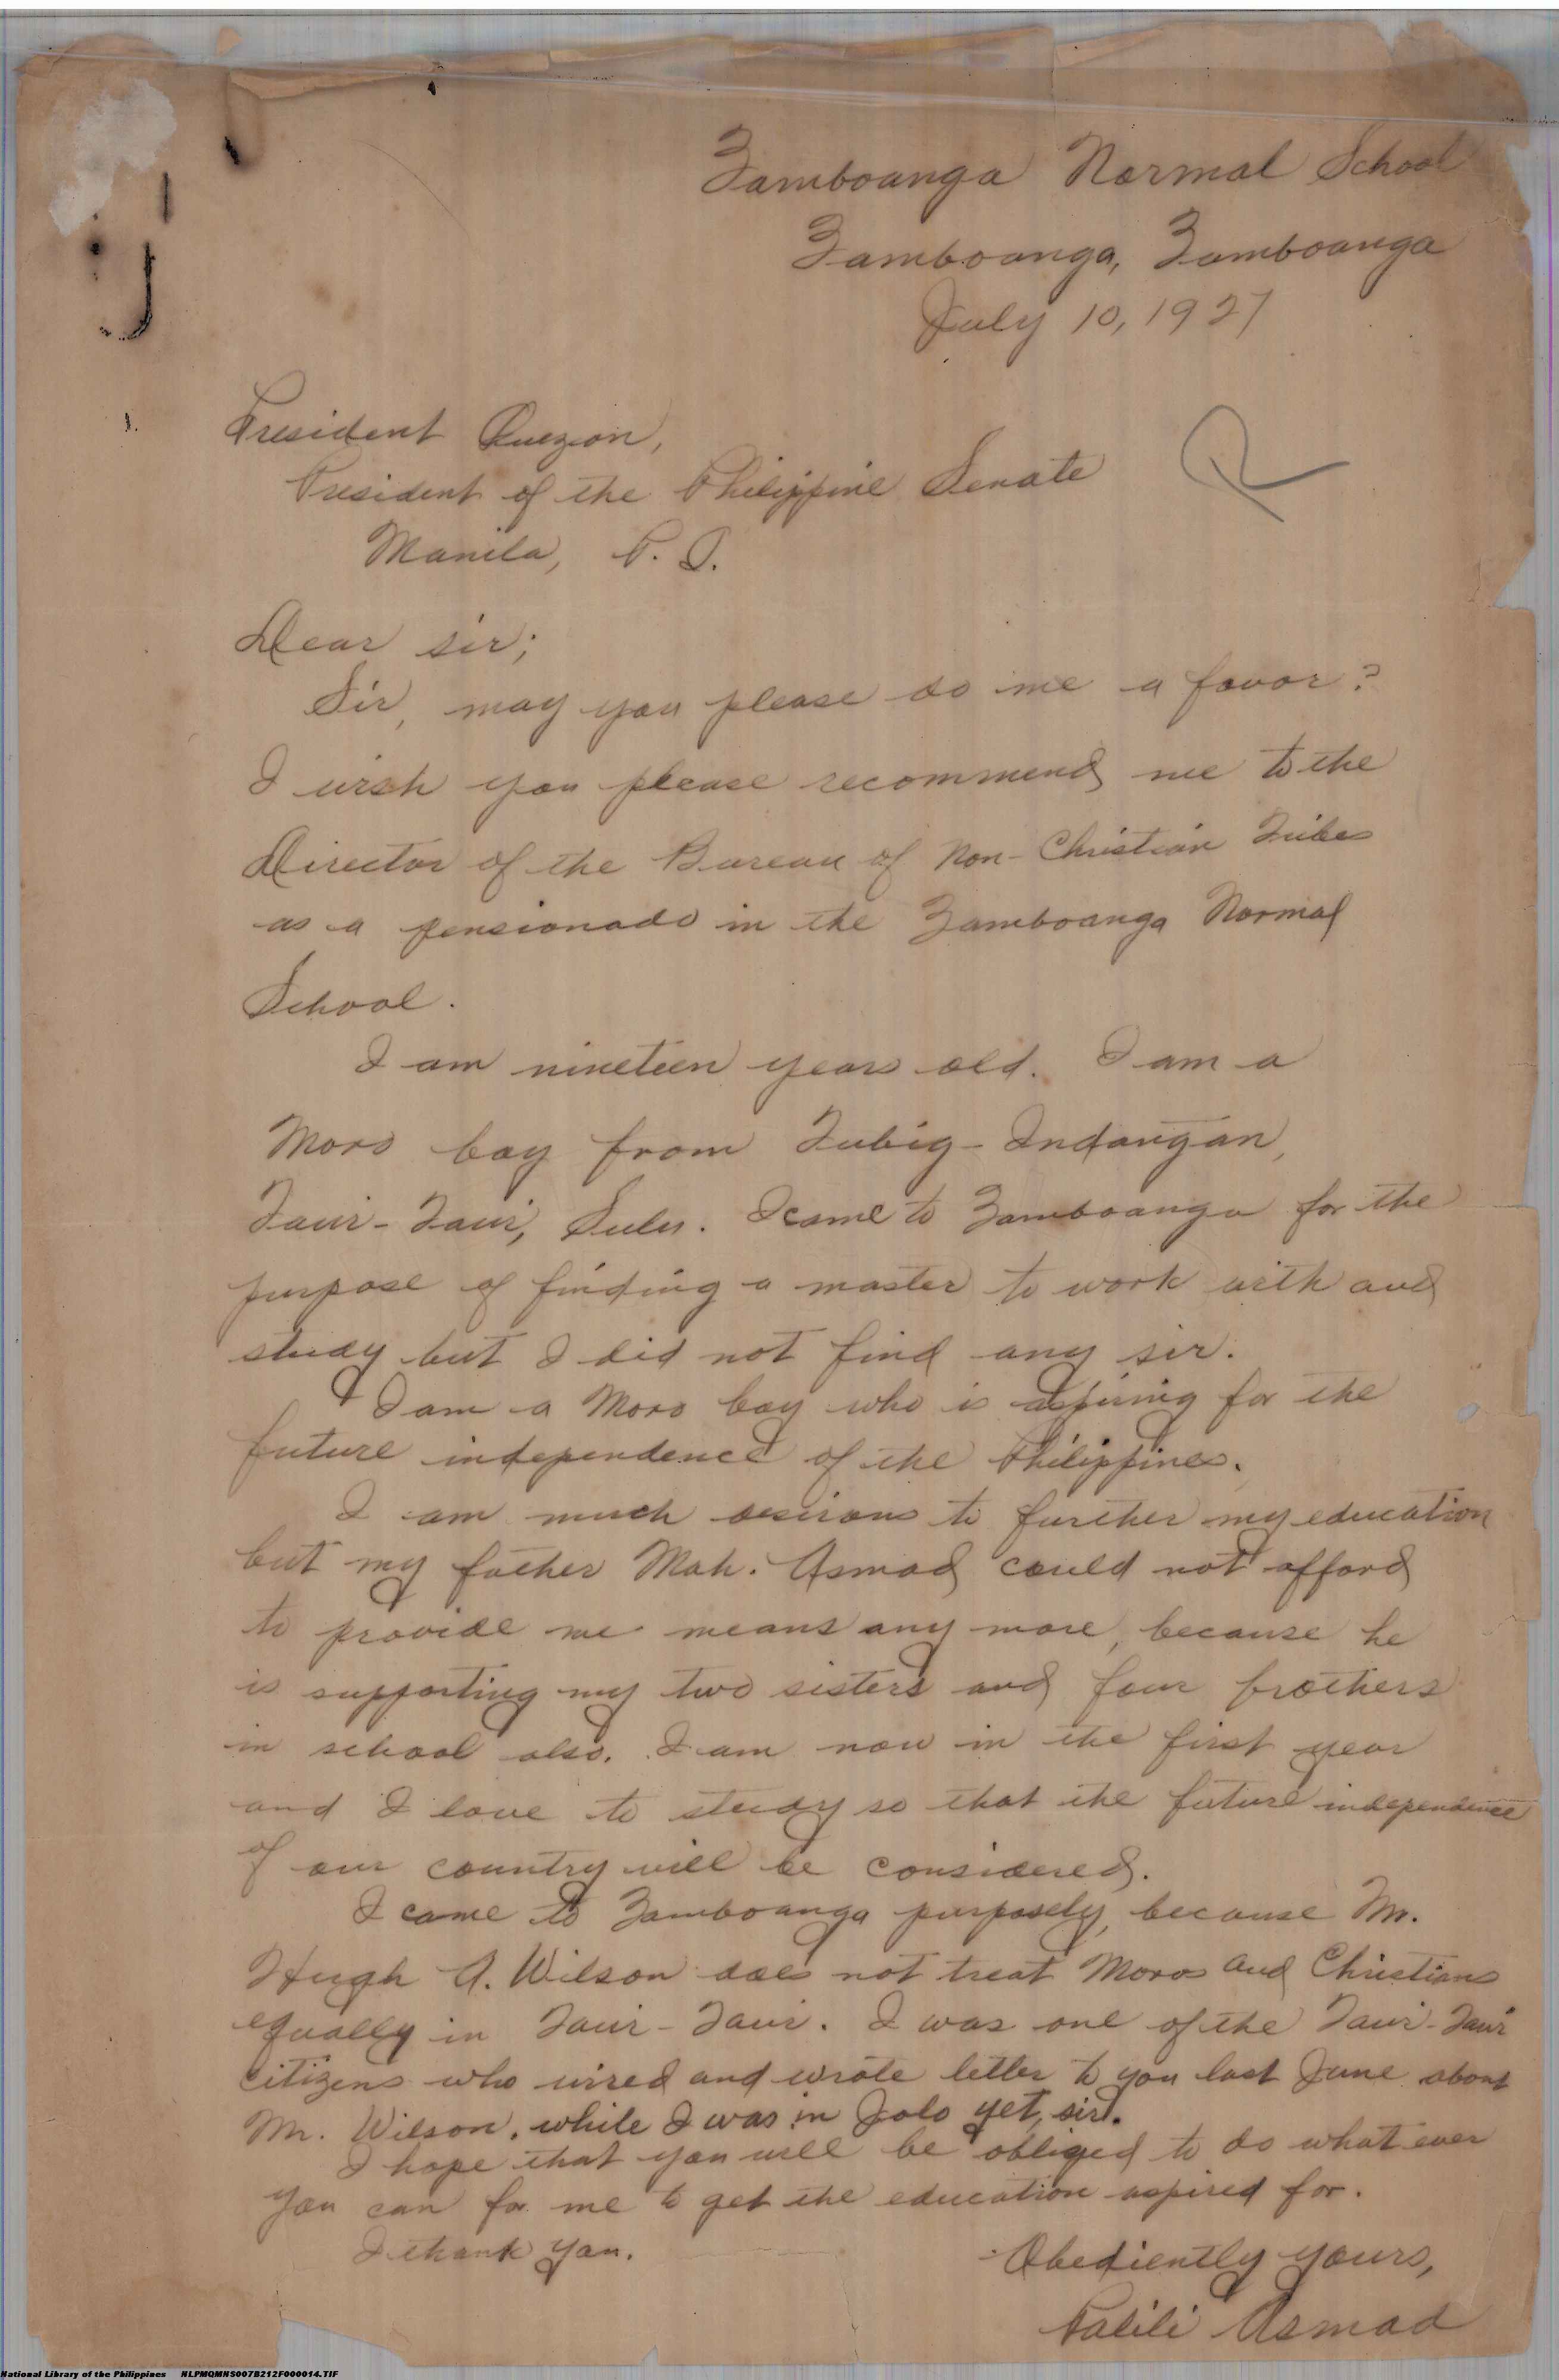 Zamboanga Normal School
Zamboanga, Zamboanga
July 10, 1927
President Quezon,
President of the Philippine Senate
Manila, P. I.
Dear sir;
Sir, may you please do me a favor?
I wish you please recommend me to the
Director of the Bureau of Non-Christian Tribes
as a pensionado in the Zamboanga Normal
School.
I am nineteen years old. I am a
Moro boy from Tubig-Indangan,
Tawi-Tawi, Sulu. I came to Zamboanga for the
purpose of finding a master to work with and
study but I did not find any sir.
I am a Moro boy who is aspiring for the
future independence of the Philippines.
I am much desirous to further my education
but my father Moh. Asmad could not afford
to provide me means any more, because he
is supporting my two sisters and four brothers
in school also. I am now in the first year
and I love to study so that the future independence
of our country will be considered.
I came to Zamboanga purposely, because Mr.
Hugh A. Wilson does not treat Moros and Christians
equally in Tawi-Tawi. I was one of the Tawi-Tawi
citizens who wired and wrote letter to you last June about
Mr. Wilson, while I was in Jolo yet, sir.
I hope that you will be obliged to do what ever
you can for me to get the education aspired for.
I thank you.
Obediently yours,
Palili Asmad
National Library of the Philippines NLPMQMNS007B212F000014.TIF